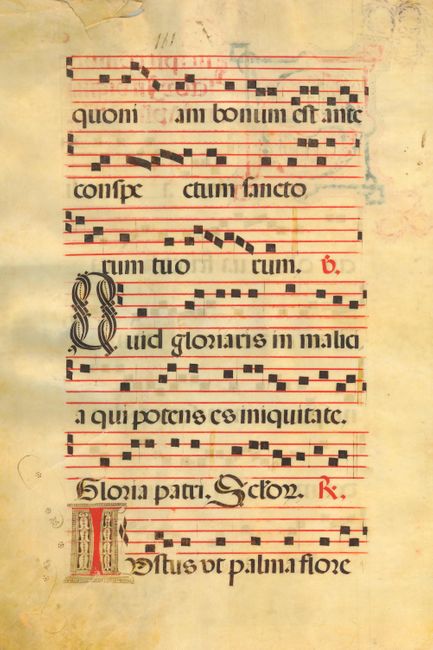 quoni am bonum est ante
conspe ctum sancto
rum tuo rum. ℣.
Quid gloriaris in malici
a qui potens es iniquitate.
Gloria patri. ℟.
IVstus vt palma flore